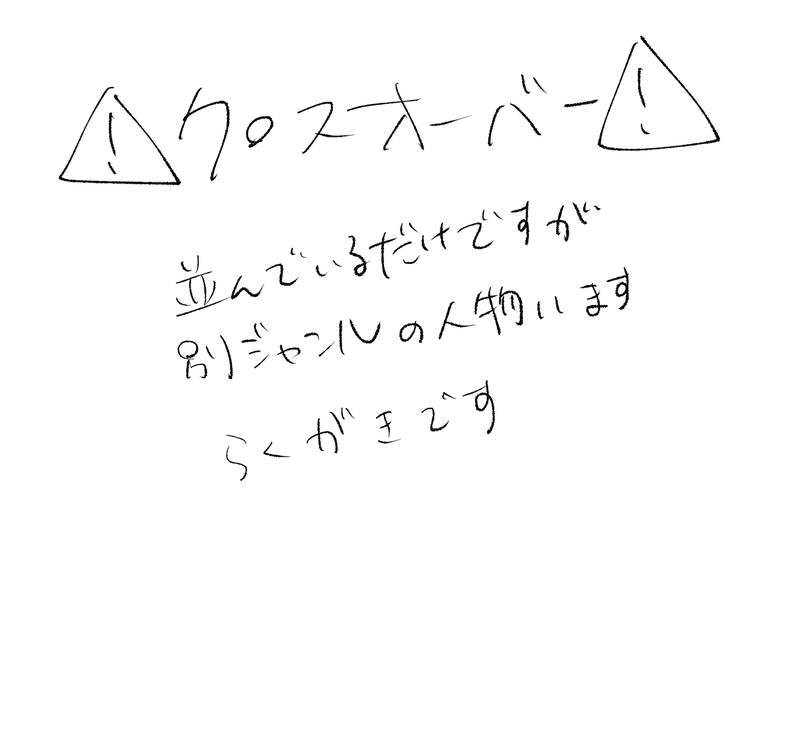 ⚠クロスオーバー⚠
並んでいるだけですが
別ジャンルの人物います
らくがきです